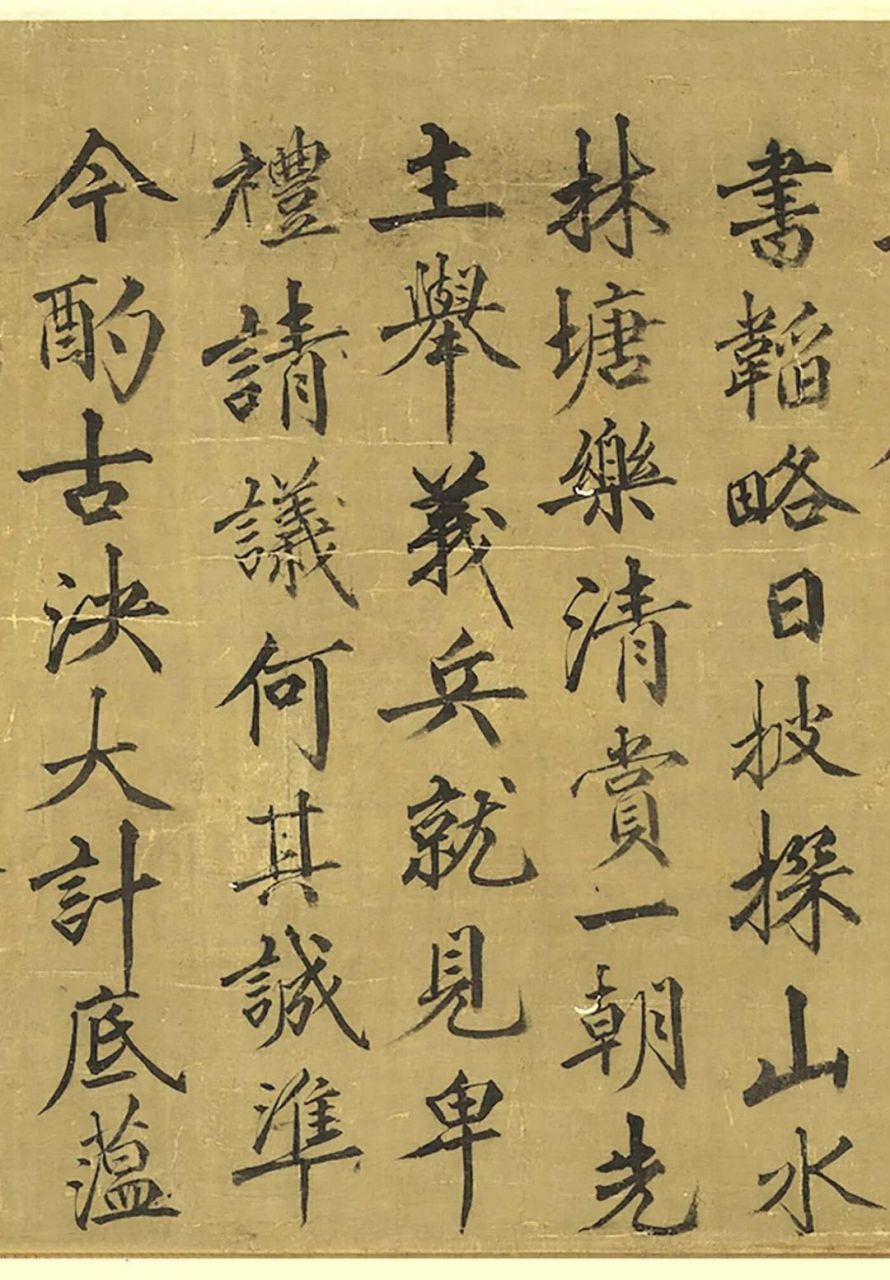 書韜略日披探山水
林塘樂清賞一朝先
主舉義兵就見卑
禮請議何其誠準
今酌古決大計底蕴